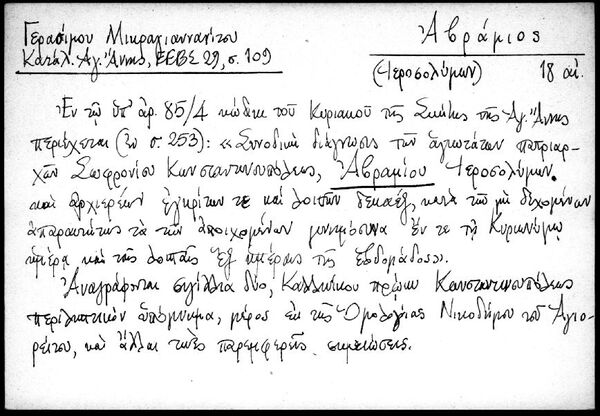 Γερασίμου Μικραγιαννανίτου
Κατάλ. Ἁγ. Ἄννης, ΕΕΒΣ 29, σ. 109
Ἀβράμιος
(Ἱεροσολύμων) 18 αἰ.
Ἐν τῷ ὑπ' ἀρ. 85/4 κώδικι τοῦ Κυριακοῦ τῆς Σκήτης τῆς Ἁγ. Ἄννης
περιέχεται (ἐν σ. 253): «Συνοδικὴ διάγνωσις τῶν ἁγιωτάτων πατριαρ-
χῶν Σωφρονίου Κωνσταντινουπόλεως, Ἀβραμίου Ἱεροσολύμων
καὶ ἀρχιερέων ἐγκρίτων τε καὶ λοιπῶν δεκαέξ, κατὰ τῶν μὴ δεχομένων
ἀπαραιτήτως τὰ τῶν ἀποιχομένων μνημόσυνα ἔν τε τῇ Κυριωνύμῳ
ἡμέρᾳ καὶ ταῖς λοιπαῖς ἓξ ἡμέραις τῆς ἑβδομάδος».
Ἀναγράφονται σιγίλλια δύο, Καλλινίκου πρώην Κωνσταντινουπόλεως
περιληπτικὸν ὑπόμνημα, μέρος ἐκ τῆς Ὁμολογίας Νικοδήμου τοῦ Ἁγιο-
ρείτου, καὶ ἄλλαι τινὲς παρεμφερεῖς σημειώσεις.